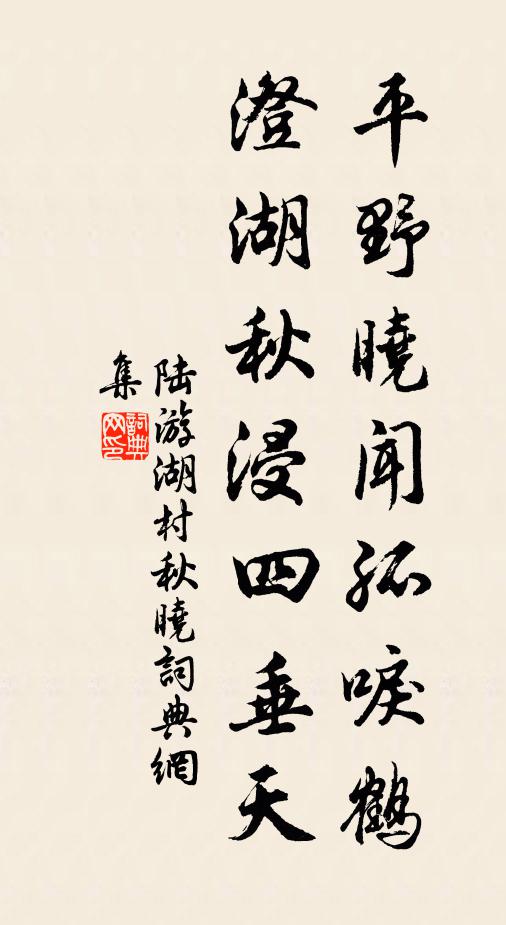 平野曉聞孤唳鶴
澄湖秋浸四垂天
陆游湖村秋曉詞典網
集
詞典网印